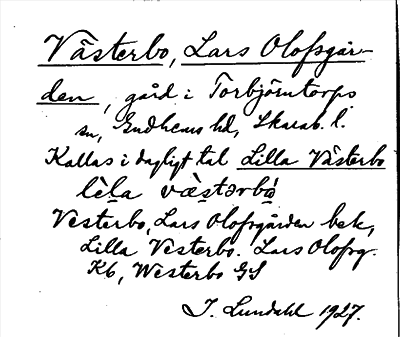 Västerbo, Lars Olofsgår-
den, gård i Torbjörntorps
sn, Gudhems hd, Skarab. l.
Kallas i dagligt tal Lilla Västerbo
lèla væ̀stərbo̊̀
Vesterbo, Lars Olofsgården bek,
Lilla Vesterbo. Lars Olofsg.
K6, Westerbo GS
I. Lundahl 1927.